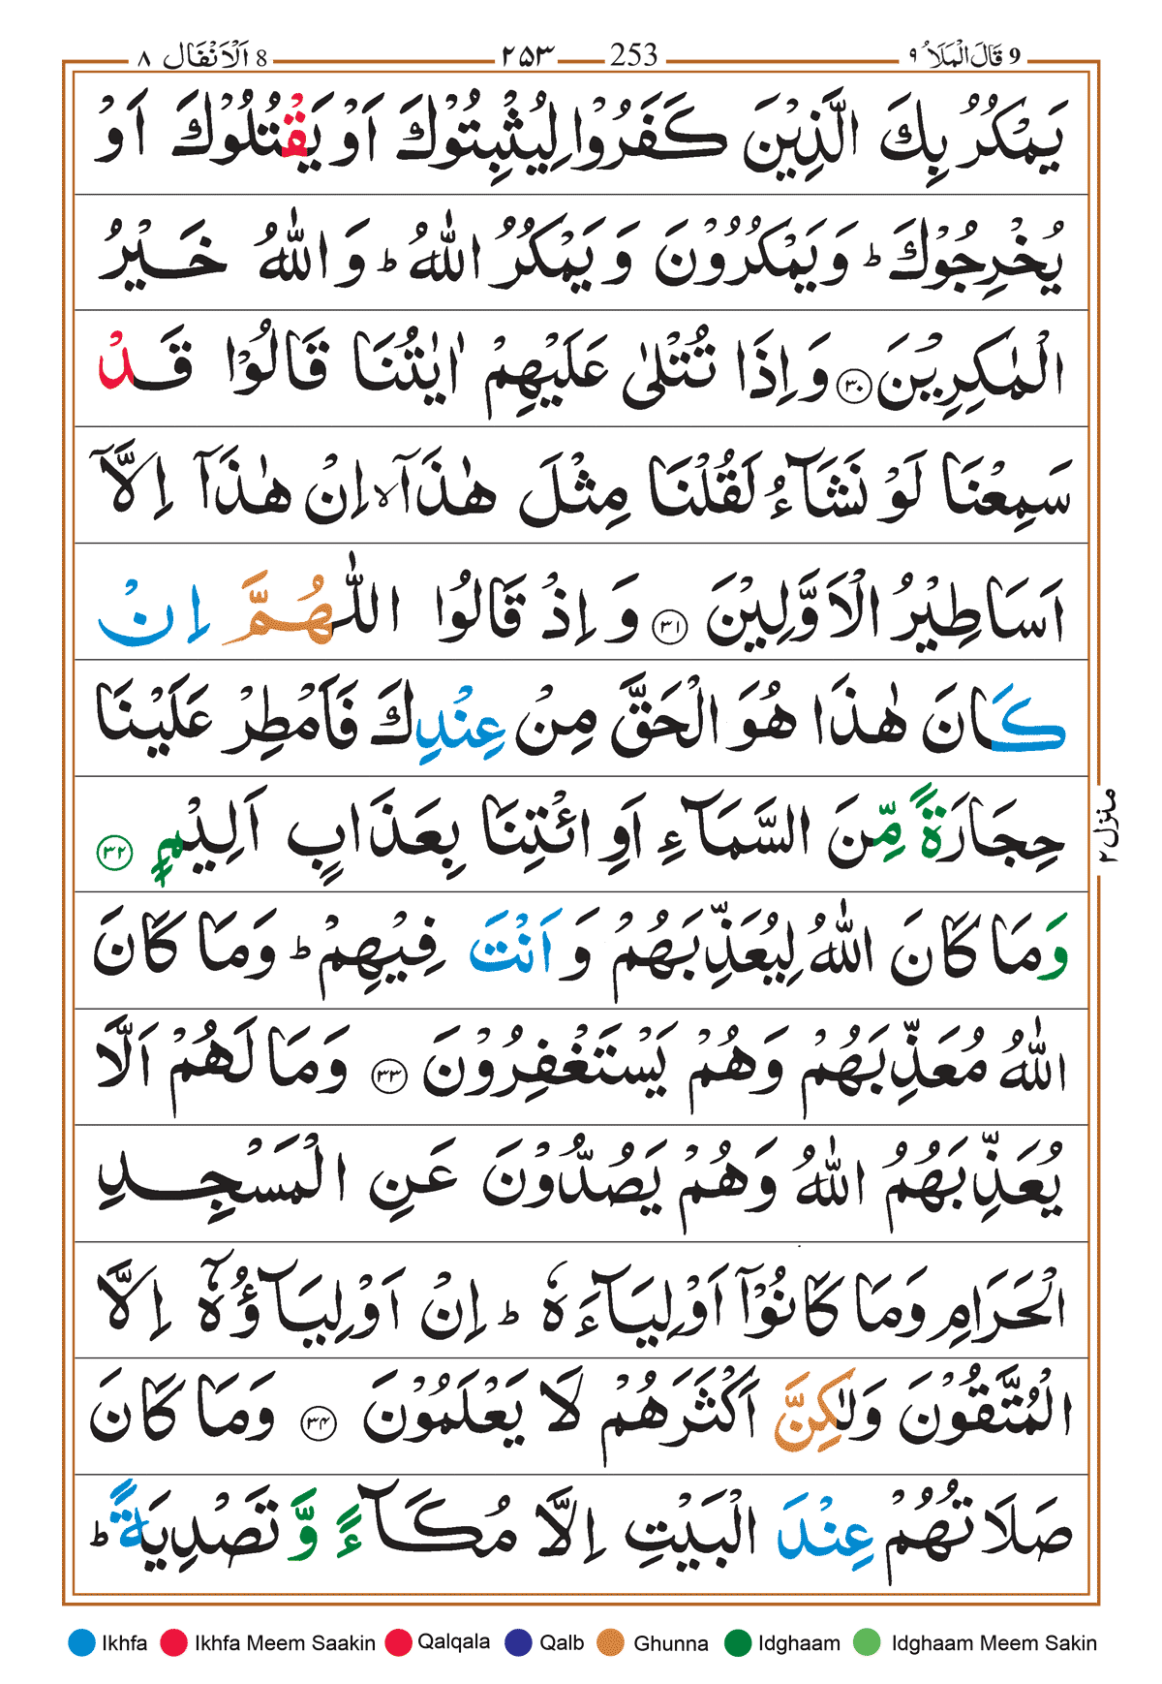 9 قَالَ الْمَلَاُ ٩ 253 ٢٥٣ 8 اَلْاَنْفَال ٨
يَمْكُرُ بِكَ الَّذِيْنَ كَفَرُوْا لِيُثْبِتُوْكَ اَوْ يَقْتُلُوْكَ اَوْ
يُخْرِجُوْكَ ؕ وَيَمْكُرُوْنَ وَيَمْكُرُ اللّٰهُ ؕ وَاللّٰهُ خَيْرُ
الْمٰكِرِيْنَ ﴿۳۰﴾ وَاِذَا تُتْلٰى عَلَيْهِمْ اٰيٰتُنَا قَالُوْا قَدْ
سَمِعْنَا لَوْ نَشَآءُ لَقُلْنَا مِثْلَ هٰذَآ ۙ اِنْ هٰذَآ اِلَّآ
اَسَاطِيْرُ الْاَوَّلِيْنَ ﴿۳۱﴾ وَاِذْ قَالُوا اللّٰهُمَّ اِنْ
كَانَ هٰذَا هُوَ الْحَقَّ مِنْ عِنْدِكَ فَاَمْطِرْ عَلَيْنَا
حِجَارَةً مِّنَ السَّمَآءِ اَوِ ائْتِنَا بِعَذَابٍ اَلِيْمٍ ﴿۳۲﴾
وَمَا كَانَ اللّٰهُ لِيُعَذِّبَهُمْ وَاَنْتَ فِيْهِمْ ؕ وَمَا كَانَ
اللّٰهُ مُعَذِّبَهُمْ وَهُمْ يَسْتَغْفِرُوْنَ ﴿۳۳﴾ وَمَا لَهُمْ اَلَّا
يُعَذِّبَهُمُ اللّٰهُ وَهُمْ يَصُدُّوْنَ عَنِ الْمَسْجِدِ
الْحَرَامِ وَمَا كَانُوْٓا اَوْلِيَآءَهٗ ؕ اِنْ اَوْلِيَآؤُهٗٓ اِلَّا
الْمُتَّقُوْنَ وَلٰكِنَّ اَكْثَرَهُمْ لَا يَعْلَمُوْنَ ﴿۳۴﴾ وَمَا كَانَ
صَلَاتُهُمْ عِنْدَ الْبَيْتِ اِلَّا مُكَآءً وَّتَصْدِيَةً ؕ
منزل ۲
Ikhfa Ikhfa Meem Saakin Qalqala Qalb Ghunna Idghaam Idghaam Meem Sakin